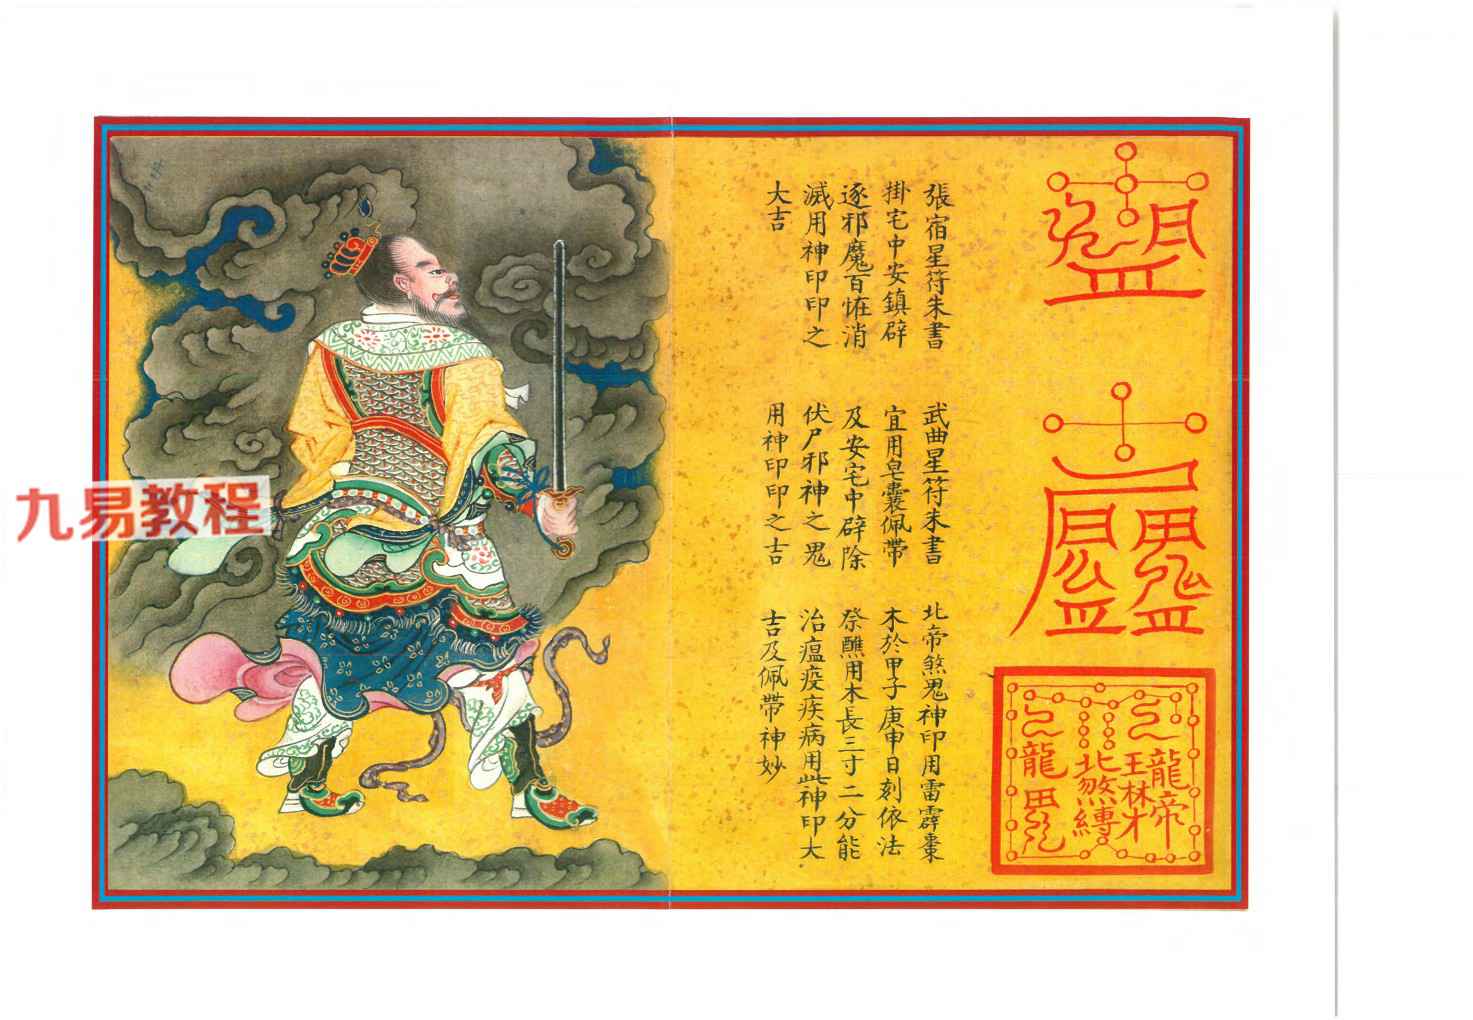 張宿星符朱書
掛宅中安鎮辟
逐邪魔百恠消
滅用神印印之
大吉
武曲星符朱書
宜用皂囊佩帶
及安宅中辟除
伏尸邪神之鬼
用神印印之吉
北帝煞鬼神印用雷霹棗
木於甲子庚申日刻依法
祭醮用木長三寸二分能
治瘟疫疾病用此神印大
吉及佩帶神妙
龍帝
北煞縛
龍
九易教程